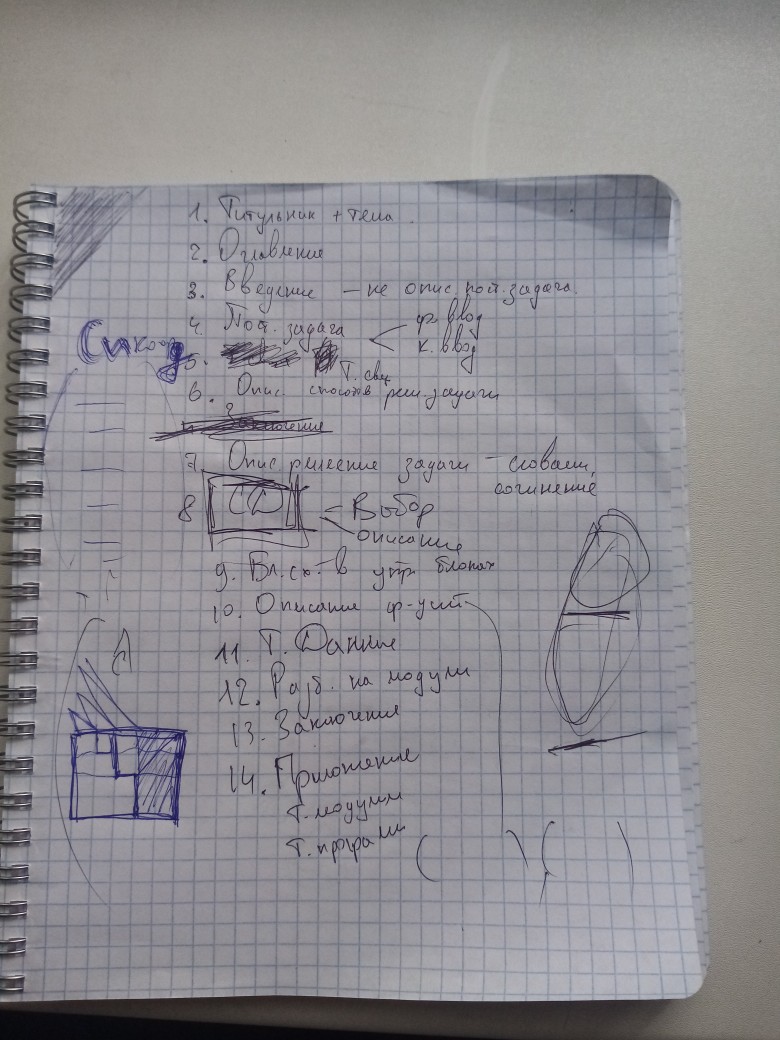 1. Титульник + тема.
2. Оглавление
3. Введение – не опис. пост. задача.
4. Пост. задача
ф. ввод
к. ввод
5.
6. Опис. способов реш. задачи
Заключение
7. Опис. решение задачи – словами,
сочинение
8 СД
Выбор
описание
9. Бл. сх. – в укр. блоках
10. Описание ф-уий
11. Т. Данные
12. Разб. на модули
13. Заключение
14. Приложение
Т. модули
Т. програмы